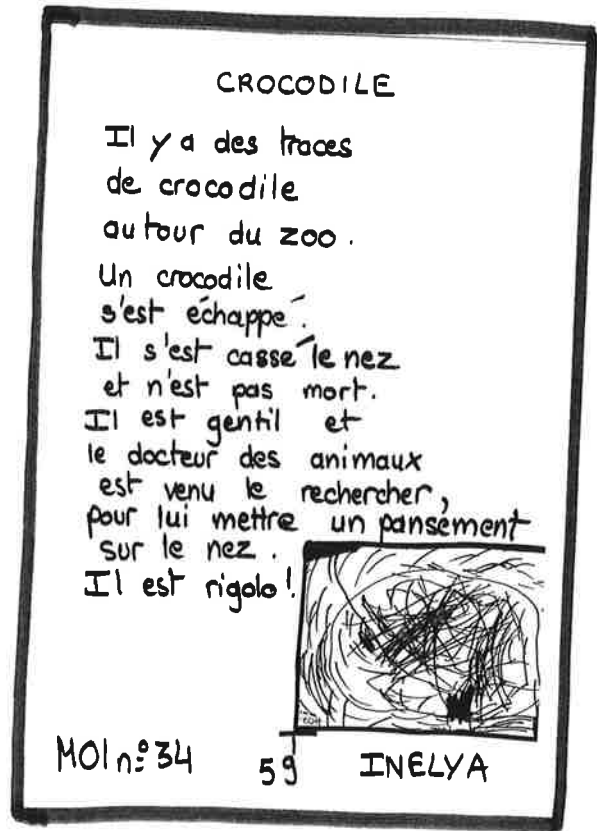 CROCODILE
Il y a des traces
de crocodile
autour du zoo.
Un crocodile
s'est échappé.
Il s'est cassé le nez
et n'est pas mort.
Il est gentil et
le docteur des animaux
est venu le rechercher,
pour lui mettre un pansement
sur le nez.
Il est rigolo!
MOI n° 34
59
INELYA